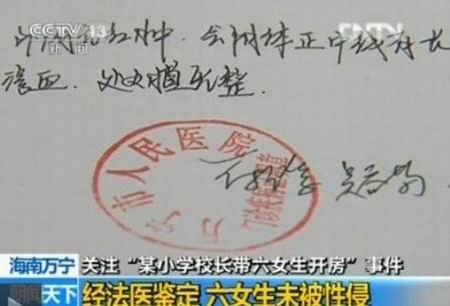 CCTV 13
新闻
CNTV
红肿. 会阴体正中线有长
渗血. 处女膜完整.
万宁市人民医院
海南万宁
关注“某小学校长带六女生开房”事件
新闻天下
经法医鉴定 六女生未被性侵